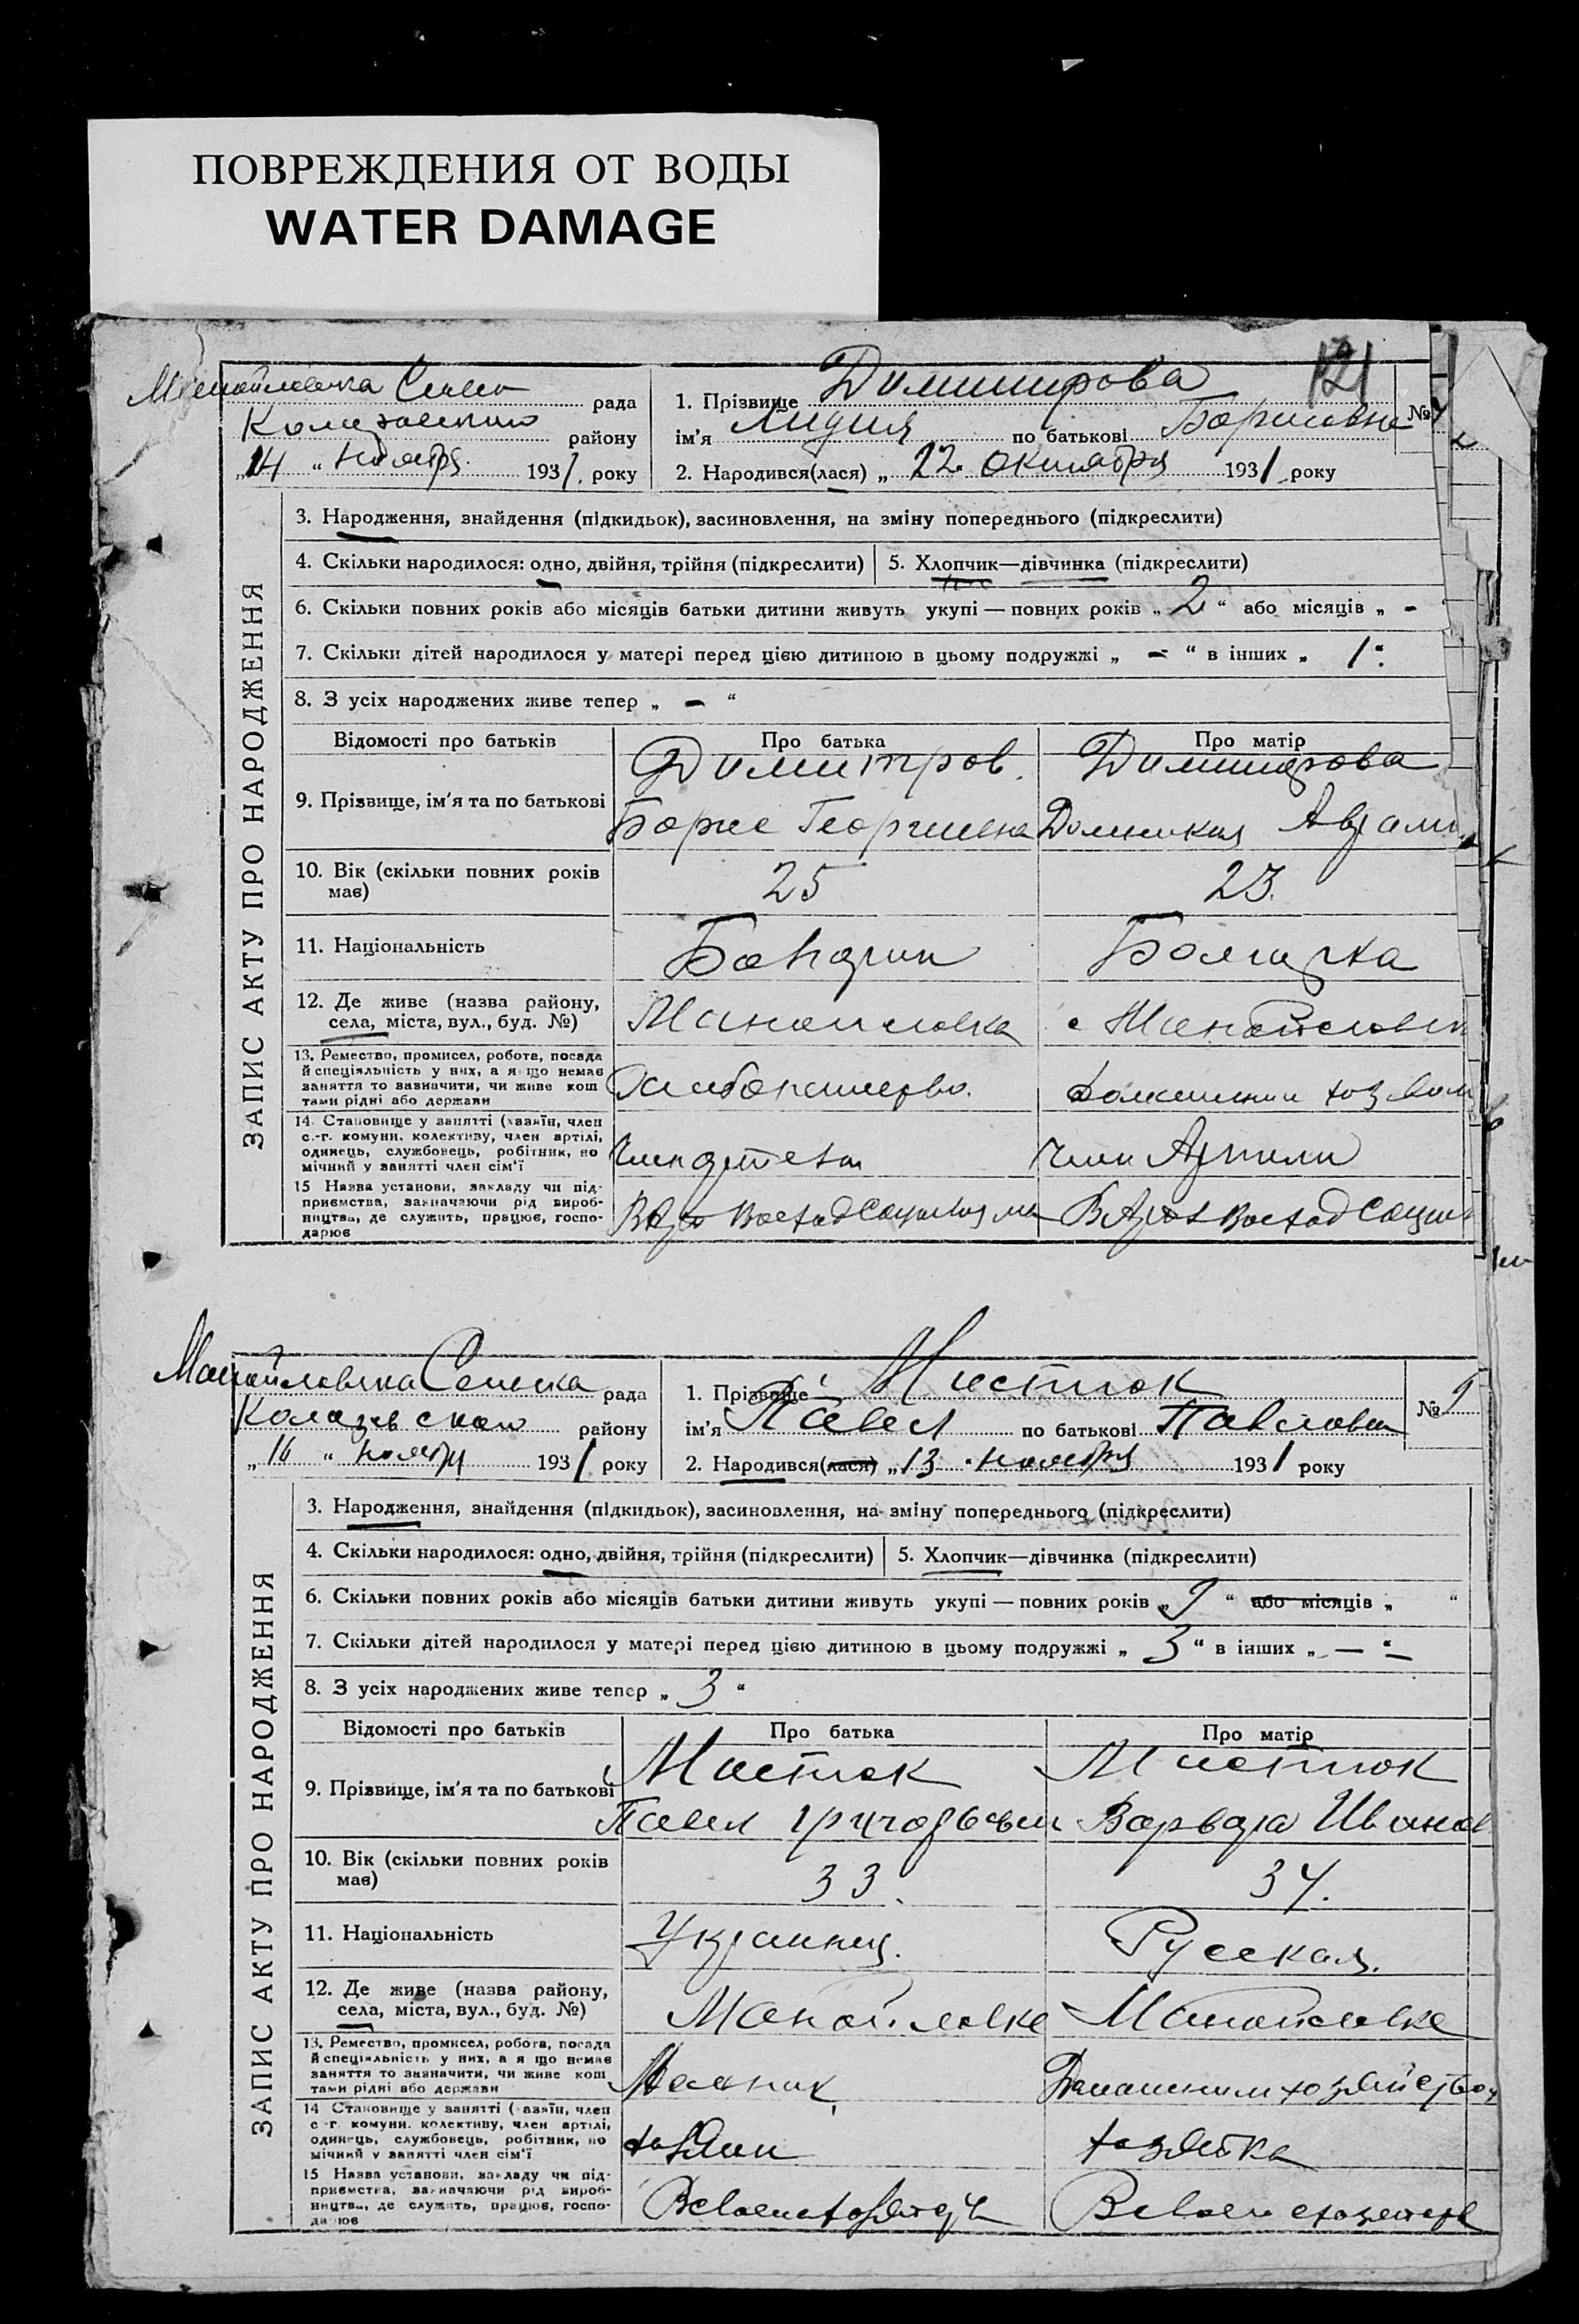 ПОВРЕЖДЕНИЯ ОТ ВОДЫ
WATER DAMAGE
121
рада
району
„14“ ноября 1931. року
1. Прізвище Димитрова
ім'я Лидия по батькові Борисовна №
2. Народився(лася) „22. октября 1931 року
ЗАПИС АКТУ ПРО НАРОДЖЕННЯ
3. Народження, знайдення (підкидьок), засиновлення, на зміну попереднього (підкреслити)
4. Скільки народилося: одно, двійня, трійня (підкреслити) 5. Хлопчик—дівчинка (підкреслити)
6. Скільки повних років або місяців батьки дитини живуть укупі — повних років „2“ або місяців „ -
7. Скільки дітей народилося у матері перед цією дитиною в цьому подружжі „ - “ в інших „ 1“
8. З усіх народжених живе тепер „ - “
Відомості про батьків Про батька Про матір
Димитров. Димитрова
9. Прізвище, ім'я та по батькові
Борис Доминикия Аврам
10. Вік (скільки повних років має) 25 23.
11. Національність Болгарка
12. Де живе (назва району, села, міста, вул., буд. №) Манойловка с Манойловк
13. Ремество, промисел, робота, посада
й спеціяльність у них, а якщо немає
заняття то зазначити, чи живе кош
тами рідні або держави
14. Становище у занятті (хазяїн, член
с.-г. комуни, колективу, член артілі,
одинець, службовець, робітник, по
мічний у занятті член сім'ї
Член артели Член Артели
15 Назва установи, закладу чи під-
приємства, зазначаючи рід вироб-
ництва, де служить, працює, госпо-
дарює
Манойловска Сельска рада
району
„16“ ноября 1931 року
1. Прізвище Мистюк
ім'я Павел по батькові Павлович № 9
2. Народився(лася) „13. ноября 1931 року
ЗАПИС АКТУ ПРО НАРОДЖЕННЯ
3. Народження, знайдення (підкидьок), засиновлення, на зміну попереднього (підкреслити)
4. Скільки народилося: одно, двійня, трійня (підкреслити) 5. Хлопчик—дівчинка (підкреслити)
6. Скільки повних років або місяців батьки дитини живуть укупі — повних років „9“ або місяців „ “
7. Скільки дітей народилося у матері перед цією дитиною в цьому подружжі „3“ в інших „ — “
8. З усіх народжених живе тепер „3“
Відомості про батьків Про батька Про матір
Мистюк Мистюк
9. Прізвище, ім'я та по батькові
Павел Варвара Иванов
10. Вік (скільки повних років має) 33. 34.
11. Національність Украинец. Русская.
12. Де живе (назва району, села, міста, вул., буд. №) Манойловке Манойловке
13. Ремество, промисел, робота, посада
й спеціяльність у них, а якщо немає
заняття то зазначити, чи живе кош
тами рідні або держави
14 Становище у занятті (хазяїн, член
с.-г. комуни, колективу, член артілі,
одинець, службовець, робітник, по
мічний у занятті член сім'ї
хозяин хозяйка
15 Назва установи, закладу чи під-
приємства, зазначаючи рід вироб-
ництва, де служить, працює, госпо-
дарює